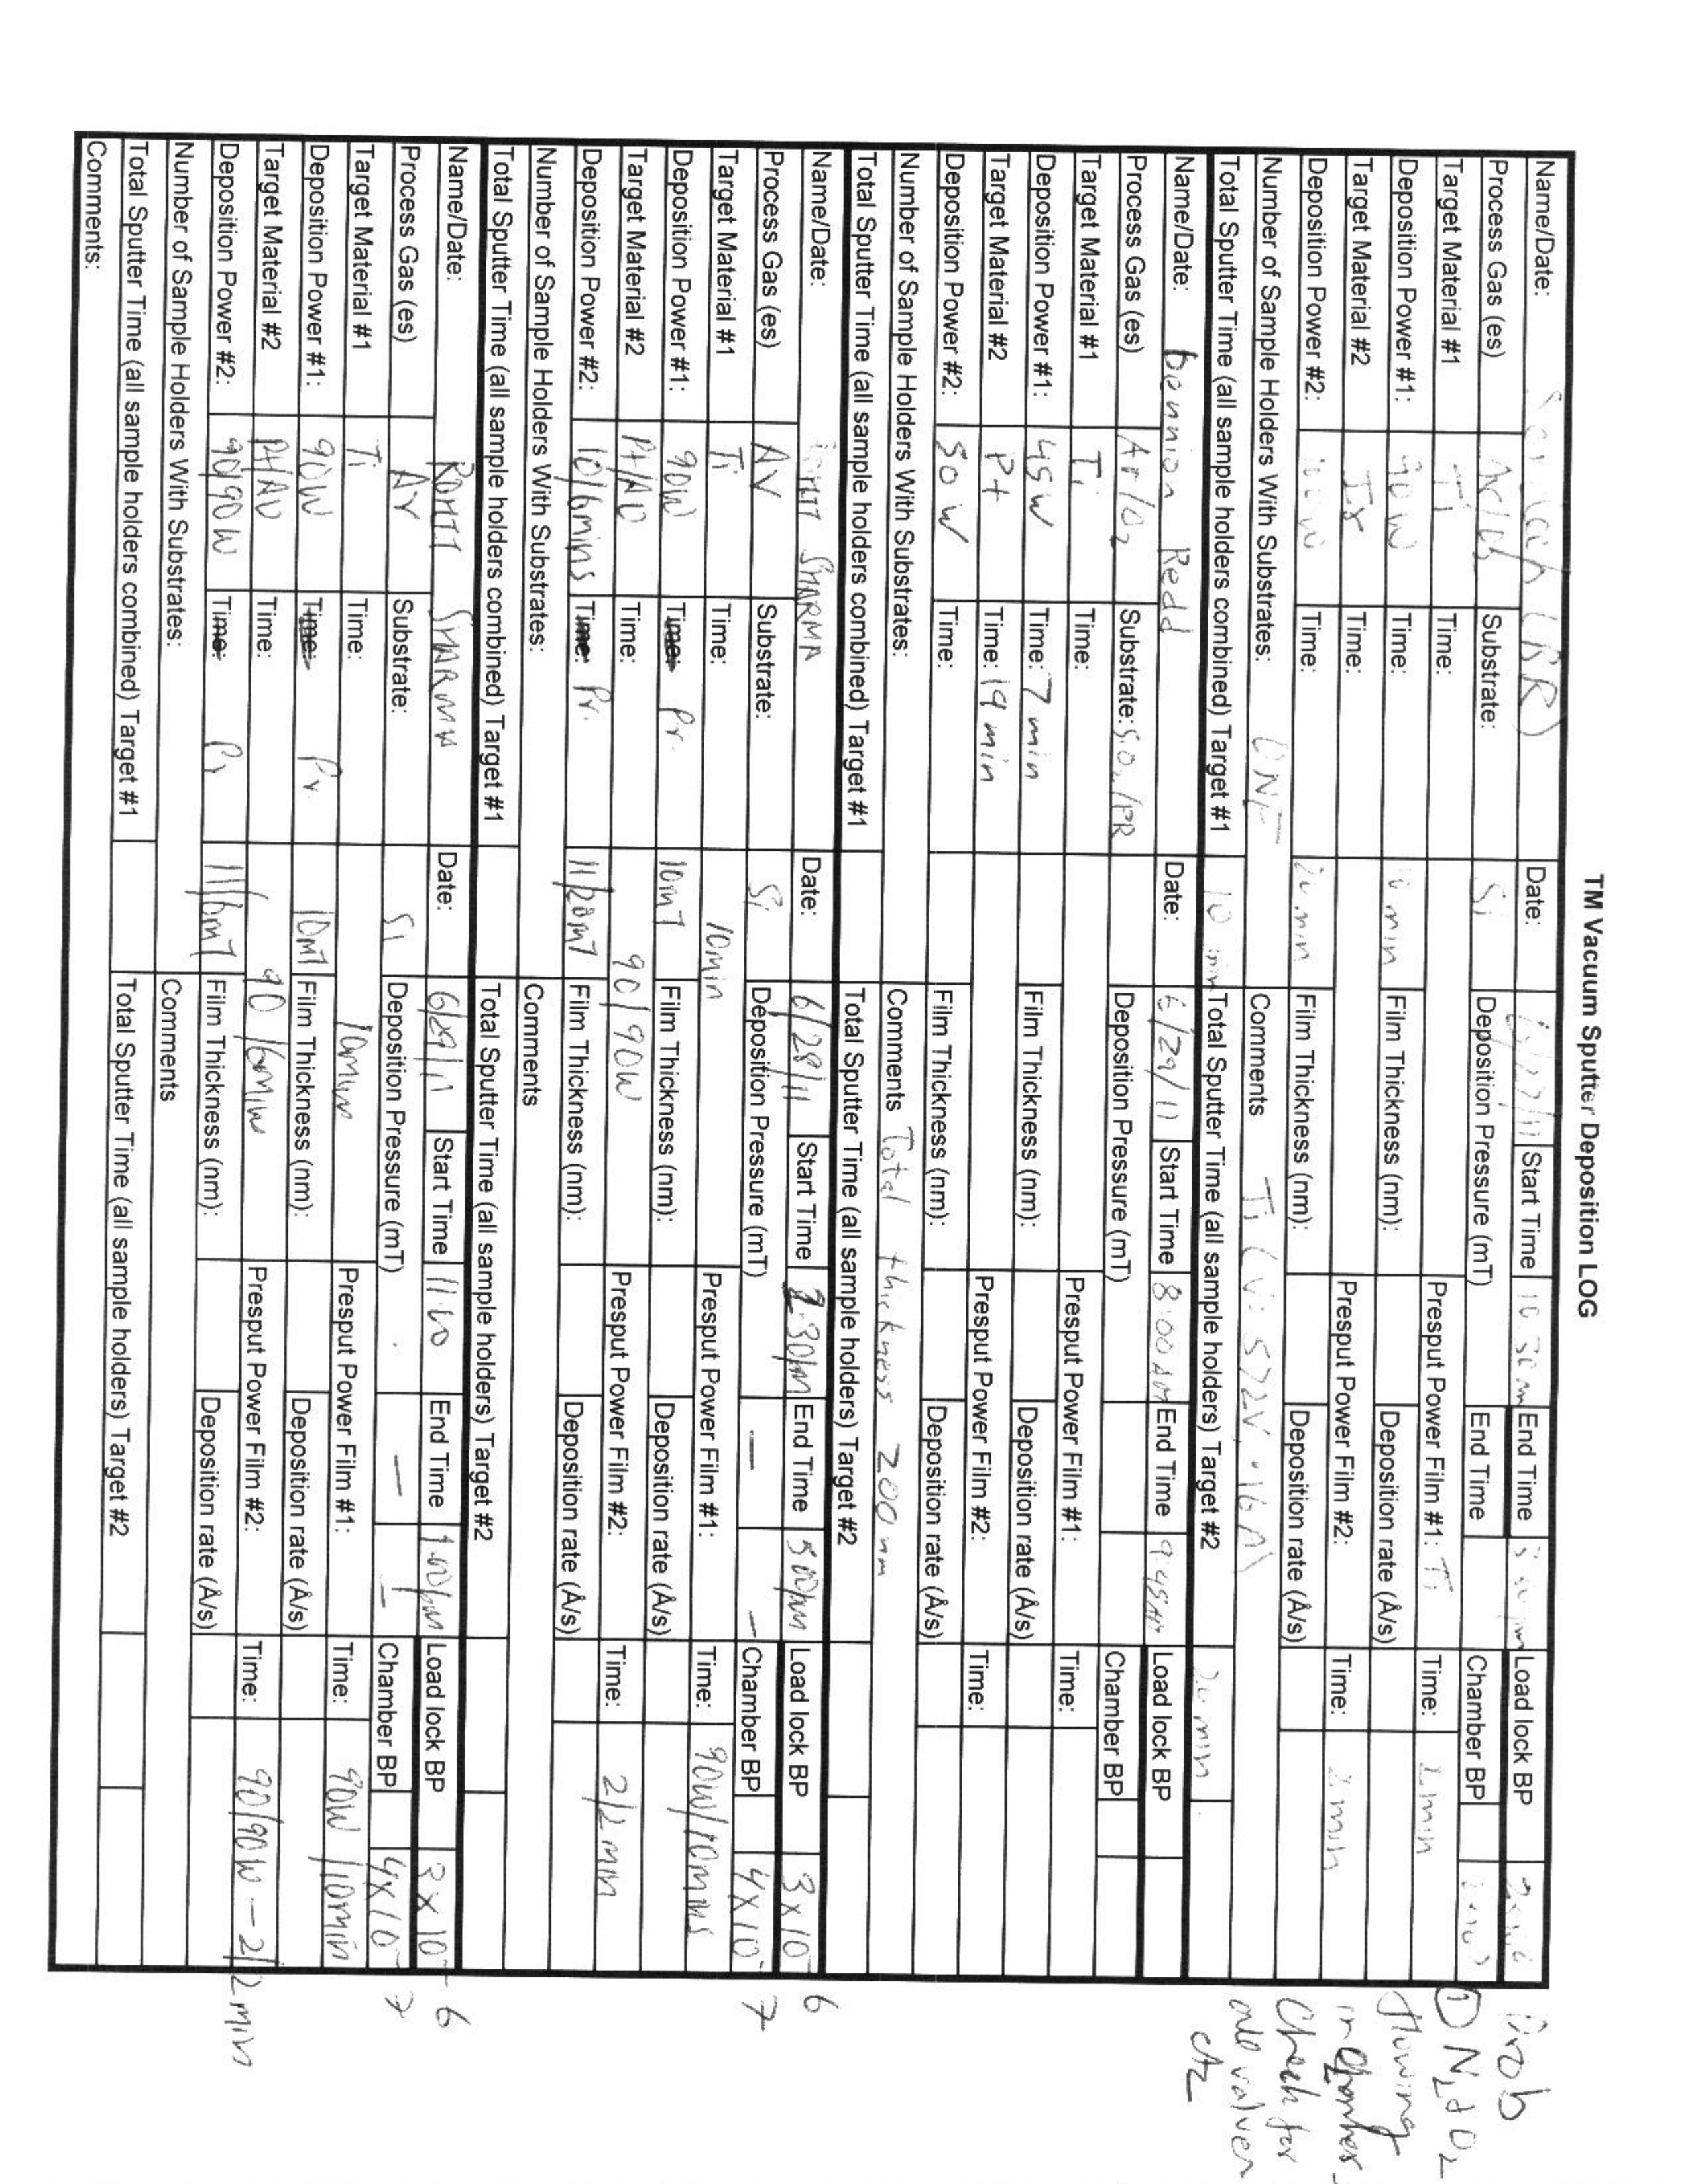 TM Vacuum Sputter Deposition LOG
Name/Date: Date: Start Time 10 30 End Time Load lock BP
Process Gas (es) Substrate: Si Deposition Pressure (mT) End Time Chamber BP
Target Material #1 Ti Time: Presput Power Film #1: Ti Time: 2 min
Deposition Power #1: 90 W Time: 10 min Film Thickness (nm): Deposition rate (Å/s)
Target Material #2 Time: Presput Power Film #2: Time: 2 min
Deposition Power #2: Time: 20 min Film Thickness (nm): Deposition rate (Å/s)
Number of Sample Holders With Substrates: Comments Ti ( V: 572V, .16 A)
Total Sputter Time (all sample holders combined) Target #1 10 min Total Sputter Time (all sample holders) Target #2 20 min
Name/Date: Dennion Redd Date: 6/29/11 Start Time 8:00 AM End Time 9:45AM Load lock BP
Process Gas (es) Ar/O2 Substrate: Deposition Pressure (mT) Chamber BP
Target Material #1 Ti Time: Presput Power Film #1: Time:
Deposition Power #1: 45W Time: 7 min Film Thickness (nm): Deposition rate (Å/s)
Target Material #2 Pt Time: 19 min Presput Power Film #2: Time:
Deposition Power #2: 50 W Time: Film Thickness (nm): Deposition rate (Å/s)
Number of Sample Holders With Substrates: Comments Total thickness 200 nm
Total Sputter Time (all sample holders combined) Target #1 Total Sputter Time (all sample holders) Target #2
Name/Date: SHARMA Date: 6/28/11 Start Time End Time Load lock BP 3 x 10-6
Process Gas (es) Ar Substrate: Si Deposition Pressure (mT) — — Chamber BP 4 x 10-7
Target Material #1 Ti Time: 10min Presput Power Film #1: Time: 90W/10mins
Deposition Power #1: 90W Time: Pr. 10mT Film Thickness (nm): Deposition rate (Å/s)
Target Material #2 Pt/AU Time: 90/90W Presput Power Film #2: Time: 2/2 min
Deposition Power #2: 10/6mins Time: Pr. 11/20mT Film Thickness (nm): Deposition rate (Å/s)
Number of Sample Holders With Substrates: Comments
Total Sputter Time (all sample holders combined) Target #1 Total Sputter Time (all sample holders) Target #2
Name/Date: SHARMA Date: 6/29/11 Start Time 11:00 End Time 1.00pm Load lock BP 3 x 10-6
Process Gas (es) Ar Substrate: Si Deposition Pressure (mT) — — Chamber BP 4x10-7
Target Material #1 Ti Time: 10min Presput Power Film #1: Time: 90W/10min
Deposition Power #1: 90W Time: Pr. 10mT Film Thickness (nm): Deposition rate (Å/s)
Target Material #2 Pt/AU Time: Presput Power Film #2: Time: 90/90W - 2/2 min
Deposition Power #2: 90/90W Time: Pr 11/6mT Film Thickness (nm): Deposition rate (Å/s)
Number of Sample Holders With Substrates: Comments
Total Sputter Time (all sample holders combined) Target #1 Total Sputter Time (all sample holders) Target #2
Comments:
Prob
① N2 + O2
flowing
in chamber
Check for
all valves
etc